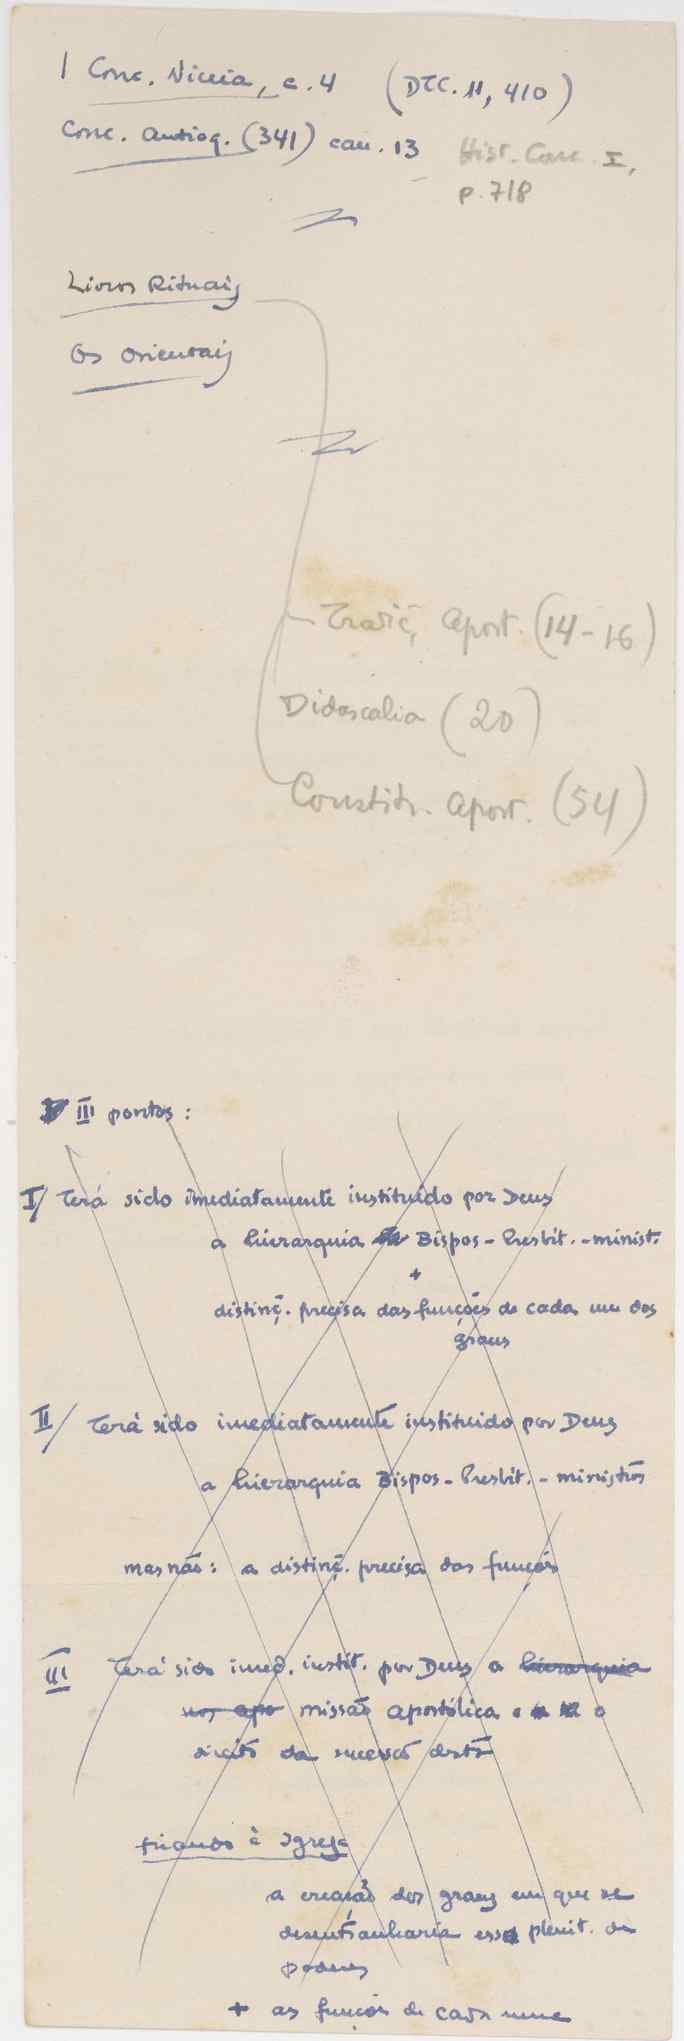 I Conc. Niceia, c. 4 (DTC. 11, 410)
Conc. Antioq. (341) can. 13 Hist. Conc. I,
p. 718
Livros Rituais
Os Orientais
Tradiç. Apost. (14-16)
Didascalia (20)
Constit. Apost. (54)
III pontos:
I/ Terá sido imediatamente instituído por Deus
a hierarquia Bispos - Presbít. - minist.
+
distinç. precisa das funções de cada um dos
graus
II/ Terá sido imediatamente instituido por Deus
a hierarquia Bispos - Presbít. - ministros
mas não: a distinç. precisa das funções
III Terá sido imed. instit. por Deus a hierarquia
nos apo missão apostólica e o
direito da sucessão desta
ficando à Igreja
a creação dos graus em que se
desentranharia essa plenit. de
poderes
+ as funções de cada um